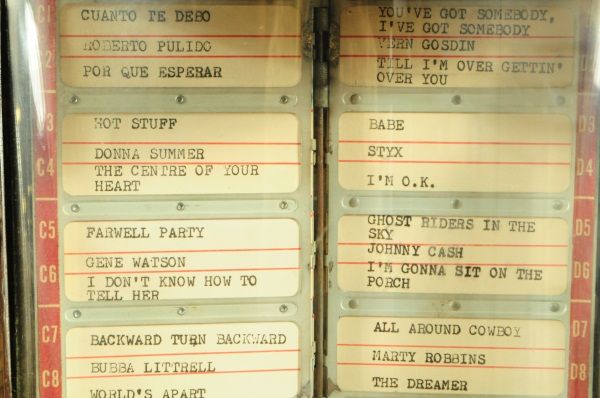 C1
CUANTO TE DEBO
ROBERTO PULIDO
2
POR QUE ESPERAR
3
HOT STUFF
DONNA SUMMER
C4
THE CENTRE OF YOUR
HEART
C5
FARWELL PARTY
GENE WATSON
C6
I DON'T KNOW HOW TO
TELL HER
C7
BACKWARD TURN BACKWARD
BUBBA LITTRELL
C8
WORLD'S APART
YOU'VE GOT SOMEBODY,
I'VE GOT SOMEBODY
VERN GOSDIN
TILL I'M OVER GETTIN'
OVER YOU
BABE
D3
STYX
D4
I'M O.K.
GHOST RIDERS IN THE
SKY
D5
JOHNNY CASH
I'M GONNA SIT ON THE
PORCH
D6
ALL AROUND COWBOY
D7
MARTY ROBBINS
THE DREAMER
D8